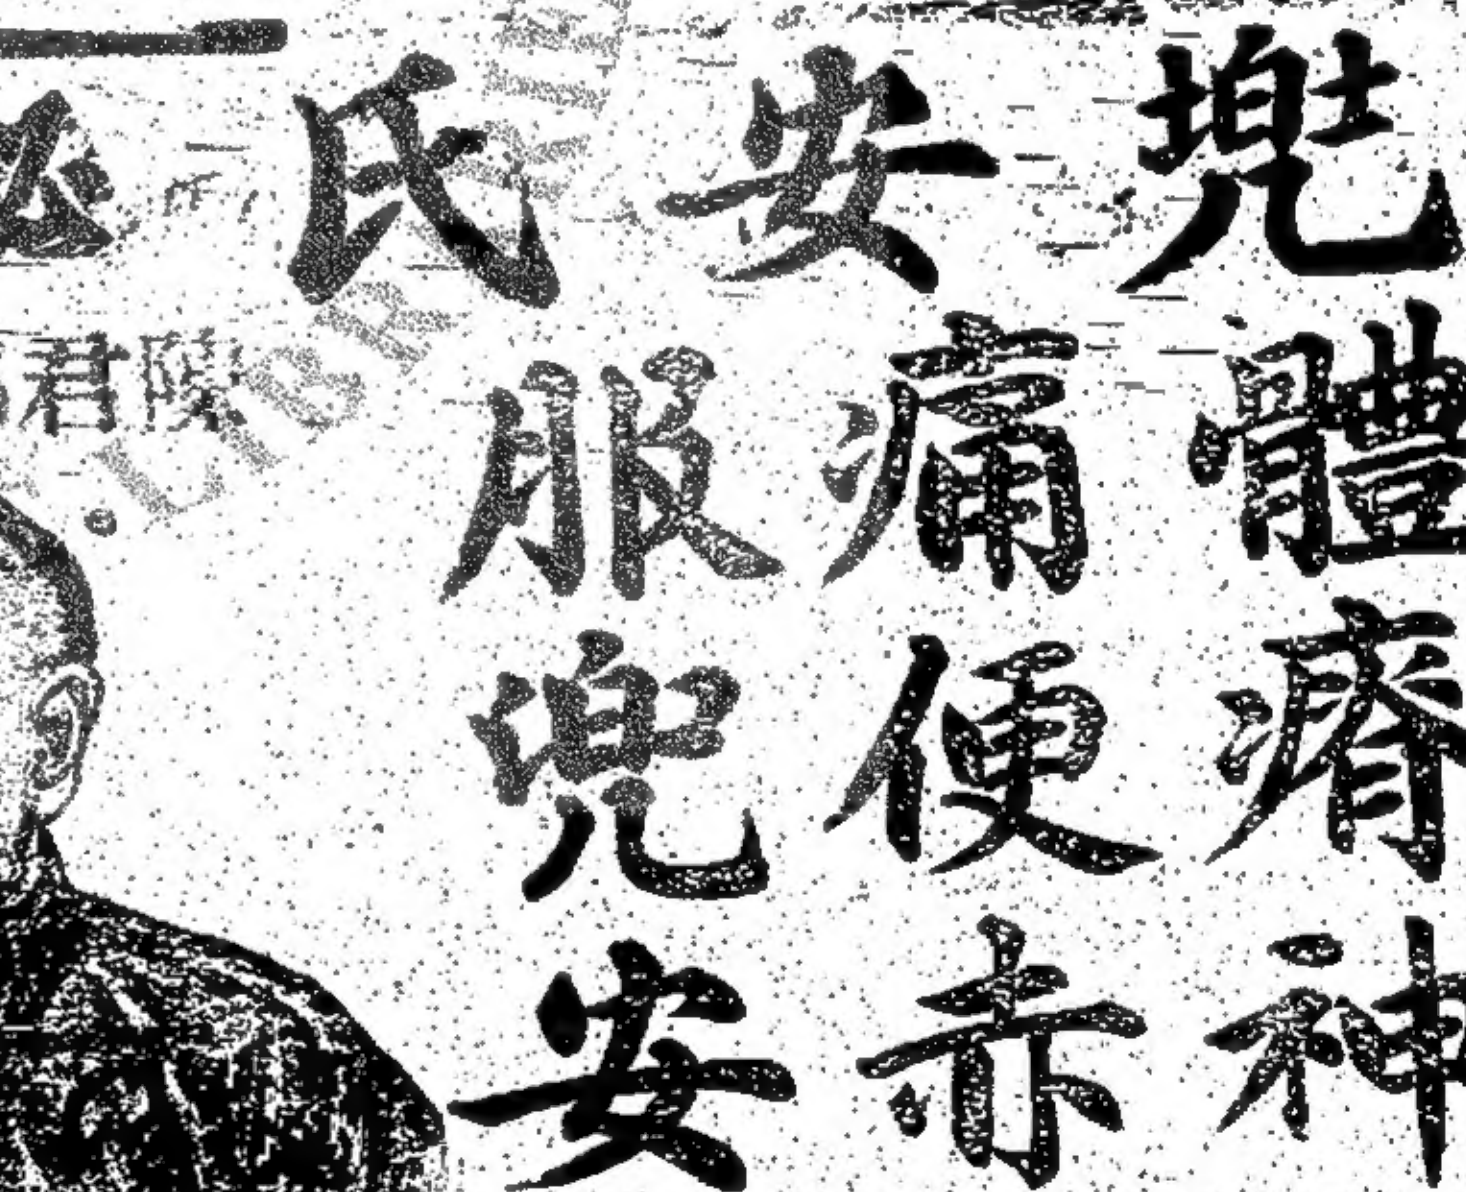 兜安氏
體瘠神
痛便赤
服兜安
陵君